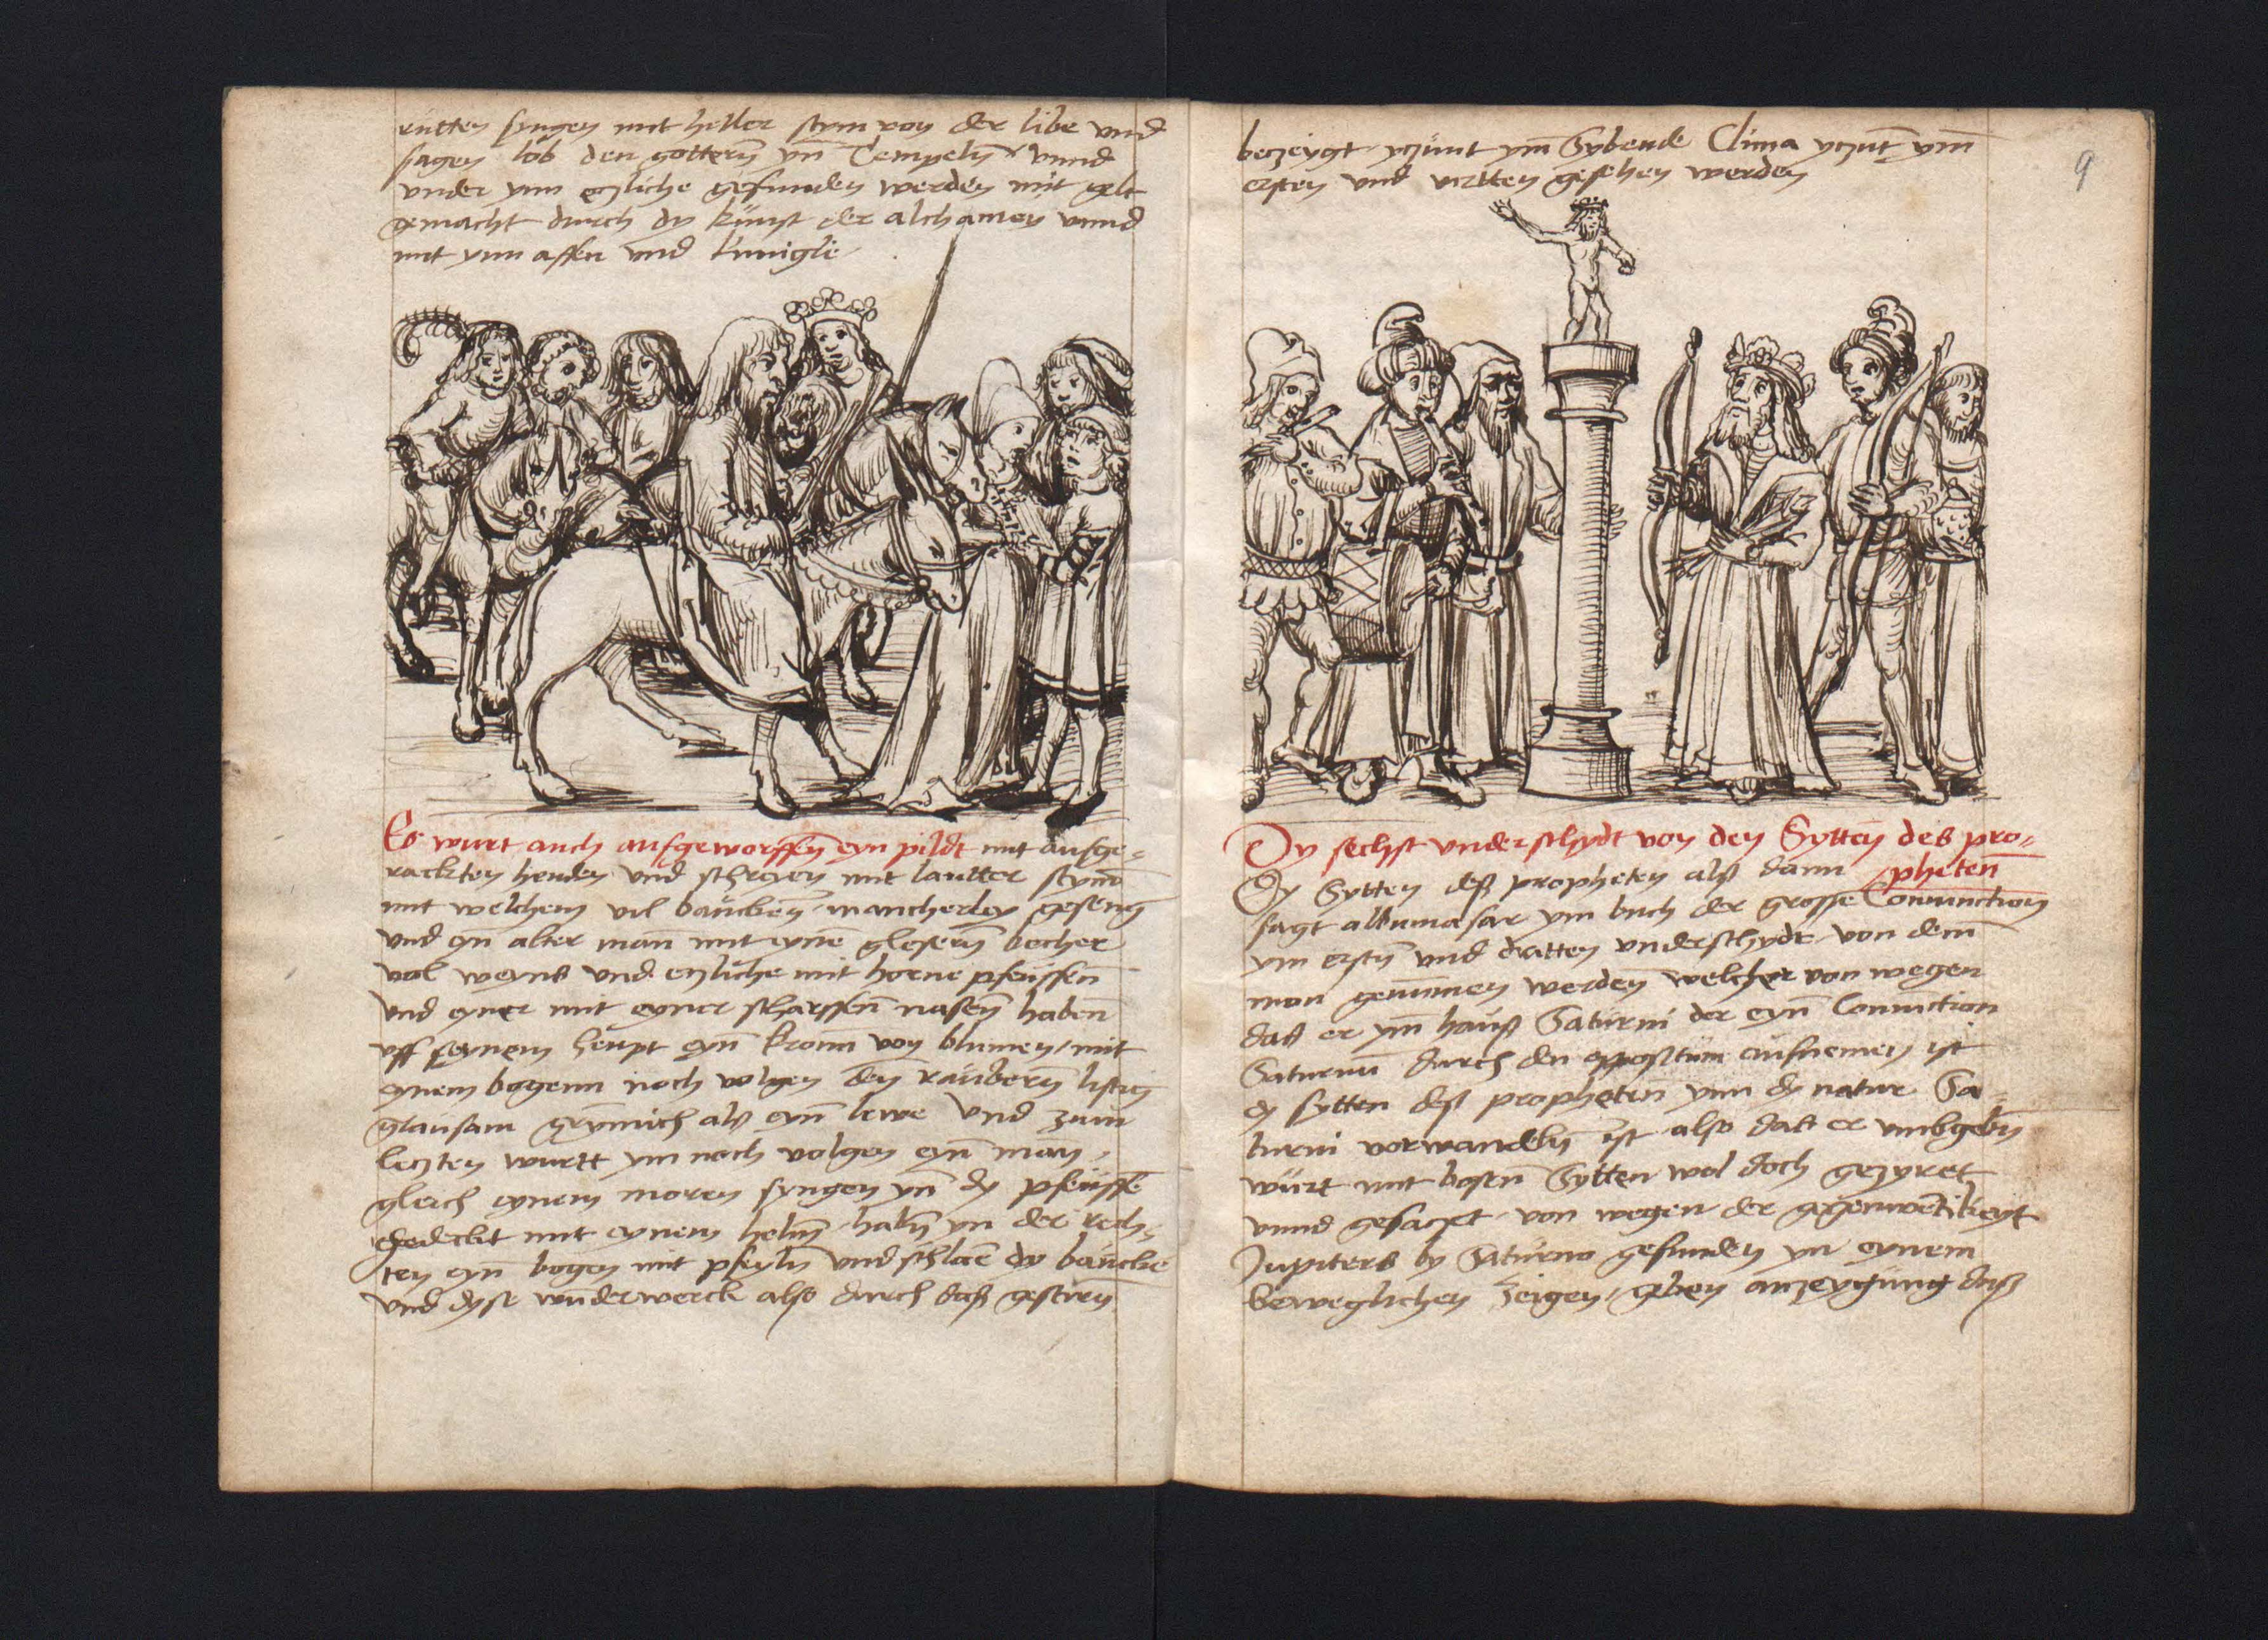 rutten syngen mit heller stym von der libe vnd
sagen lob den gottern̄ yn̄ Tempeln̄ vnnd
vnder ynn eczliche gefunden werden mit gelt
gemacht durch dy kunst der alchamey vnnd
mit ynn affen vnd kunigle
Es wurt auch aufgeworffen̄ eyn pildt mit aufge-
rackten henden vnd schreyen mit lautter stym̄
mit welchem vil baucken̄ mancherley geseng
vnd eyn alter man̄ mit eyne glesern̄ becher
vol weyns vnd eczliche mit horne pfeuffen̄
vnd eyner mit eyner scharffen̄ nasen̄ haben̄
vff seynem heupt eyn̄ kronn von blumen / mit
eynem bogenn noch volgen den̄ raubern̄ listig
grausam grymmich als eyn̄ lewe vnd zum
leczten wurtt ym noch volgen eyn̄ man,
gleich eynem moren syngen yn̄ dy pfeuffe
gedeckt mit eynem helm̄ haben̄ yn der rech-
ten eyn bogen mit pfeyln̄ vnd schlaē dy baucke
vnd dyse wunderwerck also durch daß gestirn̄
9
beczeygt yczunt ym̄ Sybende Clima yczut̄ ym̄
ersten vnd virtten gesehen werden
Dy sechst vnderschydt von den Sytten des pro-
pheten̄
Dy Sytten deß propheten alß dann
sagt albumasar ym buch der grosse Coniunction
ym erstn̄ vnd dratten vnderschydt von dem̄
man genummen werden welcher von wegen
daß er ym̄ hauß Saturni der eyn̄ Coniunction
Saturnū durch den oppositum aufnemen ist
dy sytten deß propheten̄ ynn dy natur Sa-
turni vorwandeln̄ ist also daß er vmbgebn̄
wurt mit bosen̄ Sytten wol doch gezyret
vnnd gesaczet von wegen der gegenwertikeyt
Jupiters by Saturno gefunden yn eynem
beweglichen Zeigen / geben anzeygung daß